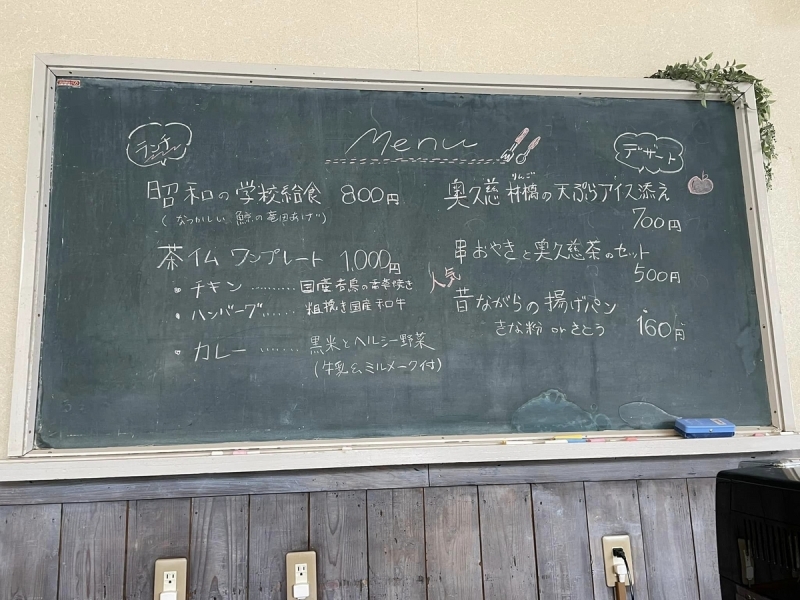 Menu
ランチ
昭和の学校給食 800円
(なつかしい 鯨の竜田あげ)
茶イム ワンプレート 1,000円
・チキン………国産若鳥の香草焼き
・ハンバーグ……粗挽き国産和牛
・カレー……黒米とヘルシー野菜
(牛乳&ミルメーク付)
デザート
りんご
奥久慈林檎の天ぷらアイス添え
700円
串おやきと奥久慈茶のセット
500円
人気
昔ながらの揚げパン
きな粉 or さとう 160円